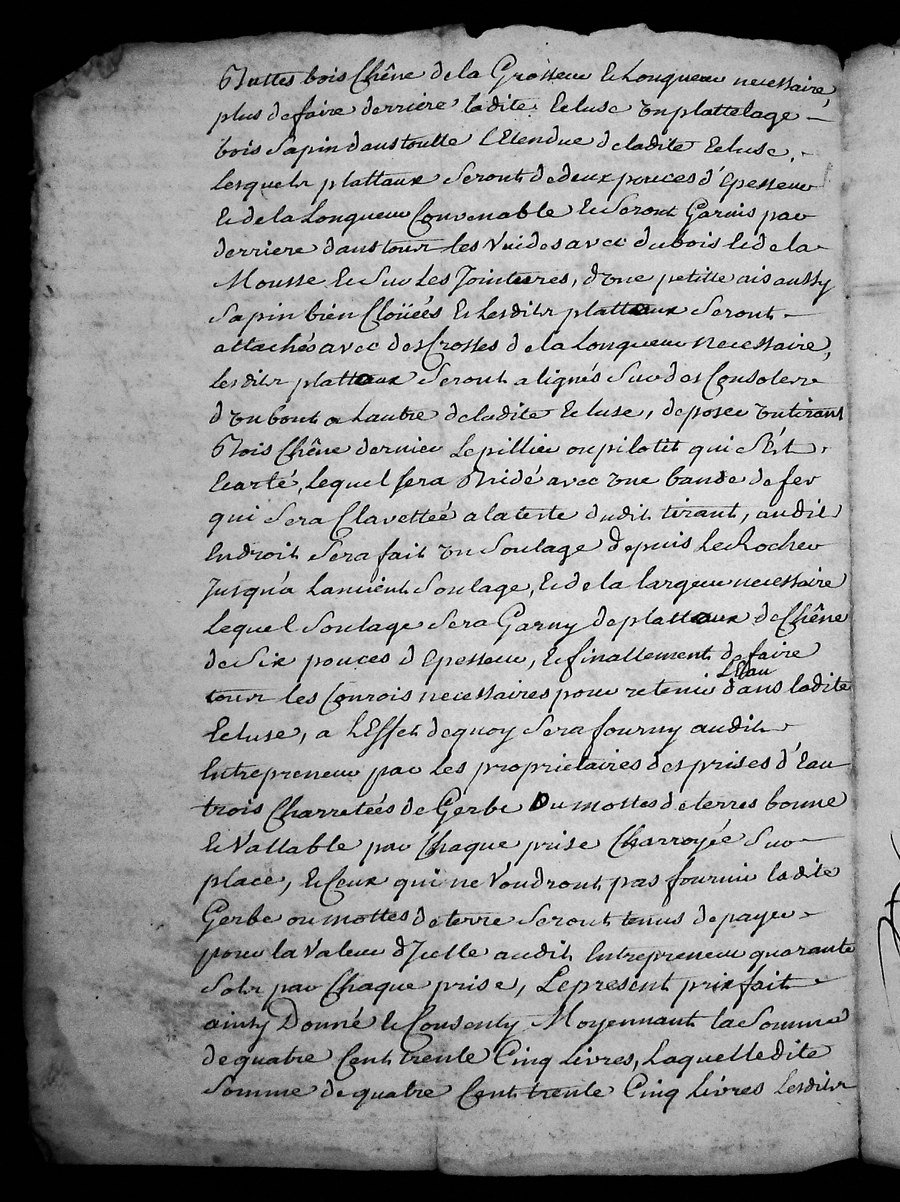 Buttes bois Chêne de la Grosseur & Longueur necessaire,
plus de faire derriere ladite Ecluse un plattelage –
bois Sapin dans toutte l'Etendue de ladite Ecluse, –
lesquels plattaux Seront de deux pouces d'Epesseur
& de la Longueur Convenable & Seront Garnis par
derriere dans tour les Vuides avec du bois & de la
Mousse & Sur Les Jointures, d'une petitte ais aussy
Sapin bien Cloüées & Lesdits plattaux Seront –
attachés avec des Crosses de la Longueur necessaire,
lesdits plattaux Seront alignés Sur des Consoles
d'un bout a Lautre de ladite Ecluse, de poser un tirant
Bois Chêne dernier Le pillier ou pilotit qui s'ést
Ecarté, Lequel sera Bridé avec une bande de fer
qui Sera Clavettée a la teste dudit tirant, audit
Endroit Sera fait un Soulage depuis Le Rocher
Jusqu'a Lancient Soulage, & de la largeur necessaire
Lequel Soulage Sera Garny de plattaux de Chêne
de Six pouces d'Epesseur, & finallement de faire
tour les Conrois necessaires pour retenir L'Eau dans ladite
Ecluse, a L'Effet de quoy Sera fourny audit
Entrepreneur par Les proprietaires des prises d'Eau
trois Charretées de Gerbe Ou mottes de terres bonne
& Vallable par Chaque prise Charroyée Sur
place, & Ceux qui ne Voudront pas fournir ladite
Gerbe ou mottes de terre Seront tenus de payer
pour la Valeur d'Icelle audit Entrepreneur quarante
Sols par Chaque prise, Le present prix fait
ainsy Donné & Consenty Moyennant la Somme
de quatre Cent trente Cinq Livres, Laquelle dite
Somme de quatre Cent trente Cinq Livres Lesdits